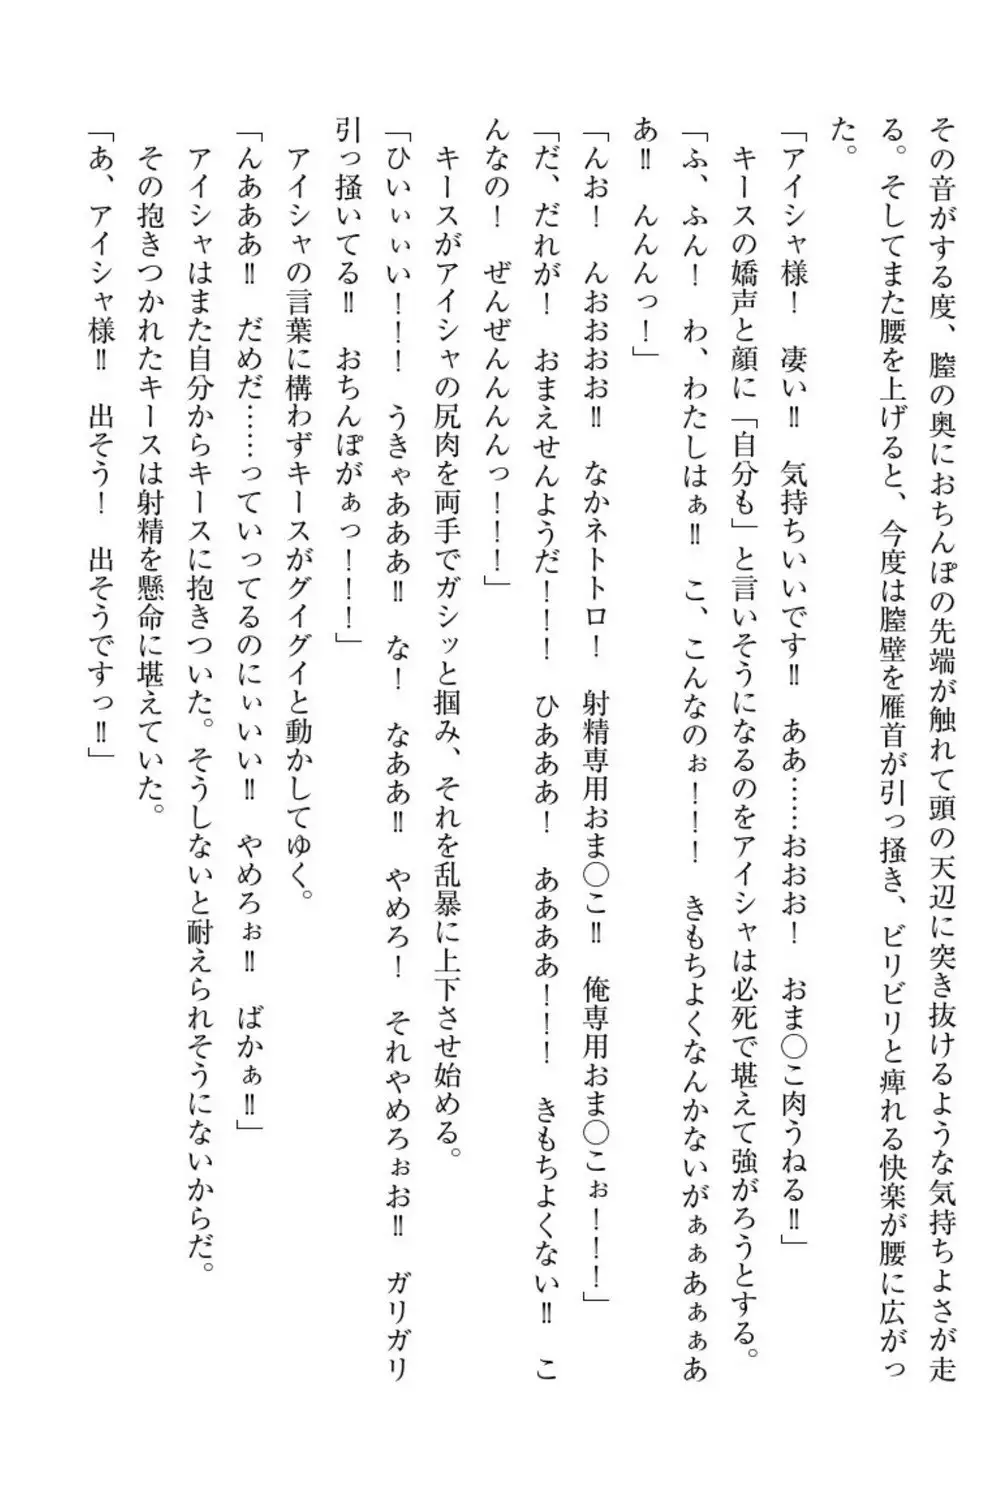 その音がする度、膣の奥におちんぽの先端が触れて頭の天辺に突き抜けるような気持ちよさが走
る。そしてまた腰を上げると、今度は膣壁を雁首が引っ掻き、ビリビリと痺れる快楽が腰に広がっ
た。
「アイシャ様！　凄い‼　気持ちいいです‼　ああ……おおお！　おま◯こ肉うねる‼」
キースの嬌声と顔に「自分も」と言いそうになるのをアイシャは必死で堪えて強がろうとする。
「ふ、ふん！　わ、わたしはぁ‼　こ、こんなのぉ！！！　きもちよくなんかないがぁぁあぁぁあ
あ‼　んんんっ！」
「んお！　んおおおお‼　なかネトトロ！　射精専用おま◯こ‼　俺専用おま◯こぉ！！！」
「だ、だれが！　おまえせんようだ！！！　ひあああ！　ああああ！！！　きもちよくない‼　こ
んなの！　ぜんぜんんんんっ！！！」
キースがアイシャの尻肉を両手でガシッと掴み、それを乱暴に上下させ始める。
「ひいぃぃぃい！！！　うきゃあああ‼　な！　なああ‼　やめろ！　それやめろぉお‼　ガリガリ
引っ掻いてる‼　おちんぽがぁっ！！！」
アイシャの言葉に構わずキースがグイグイと動かしてゆく。
「んあああ‼　だめだ……っていってるのにぃいい‼　やめろぉ‼　ばかぁ‼」
アイシャはまた自分からキースに抱きついた。そうしないと耐えられそうにないからだ。
その抱きつかれたキースは射精を懸命に堪えていた。
「あ、アイシャ様‼　出そう！　出そうですっ‼」